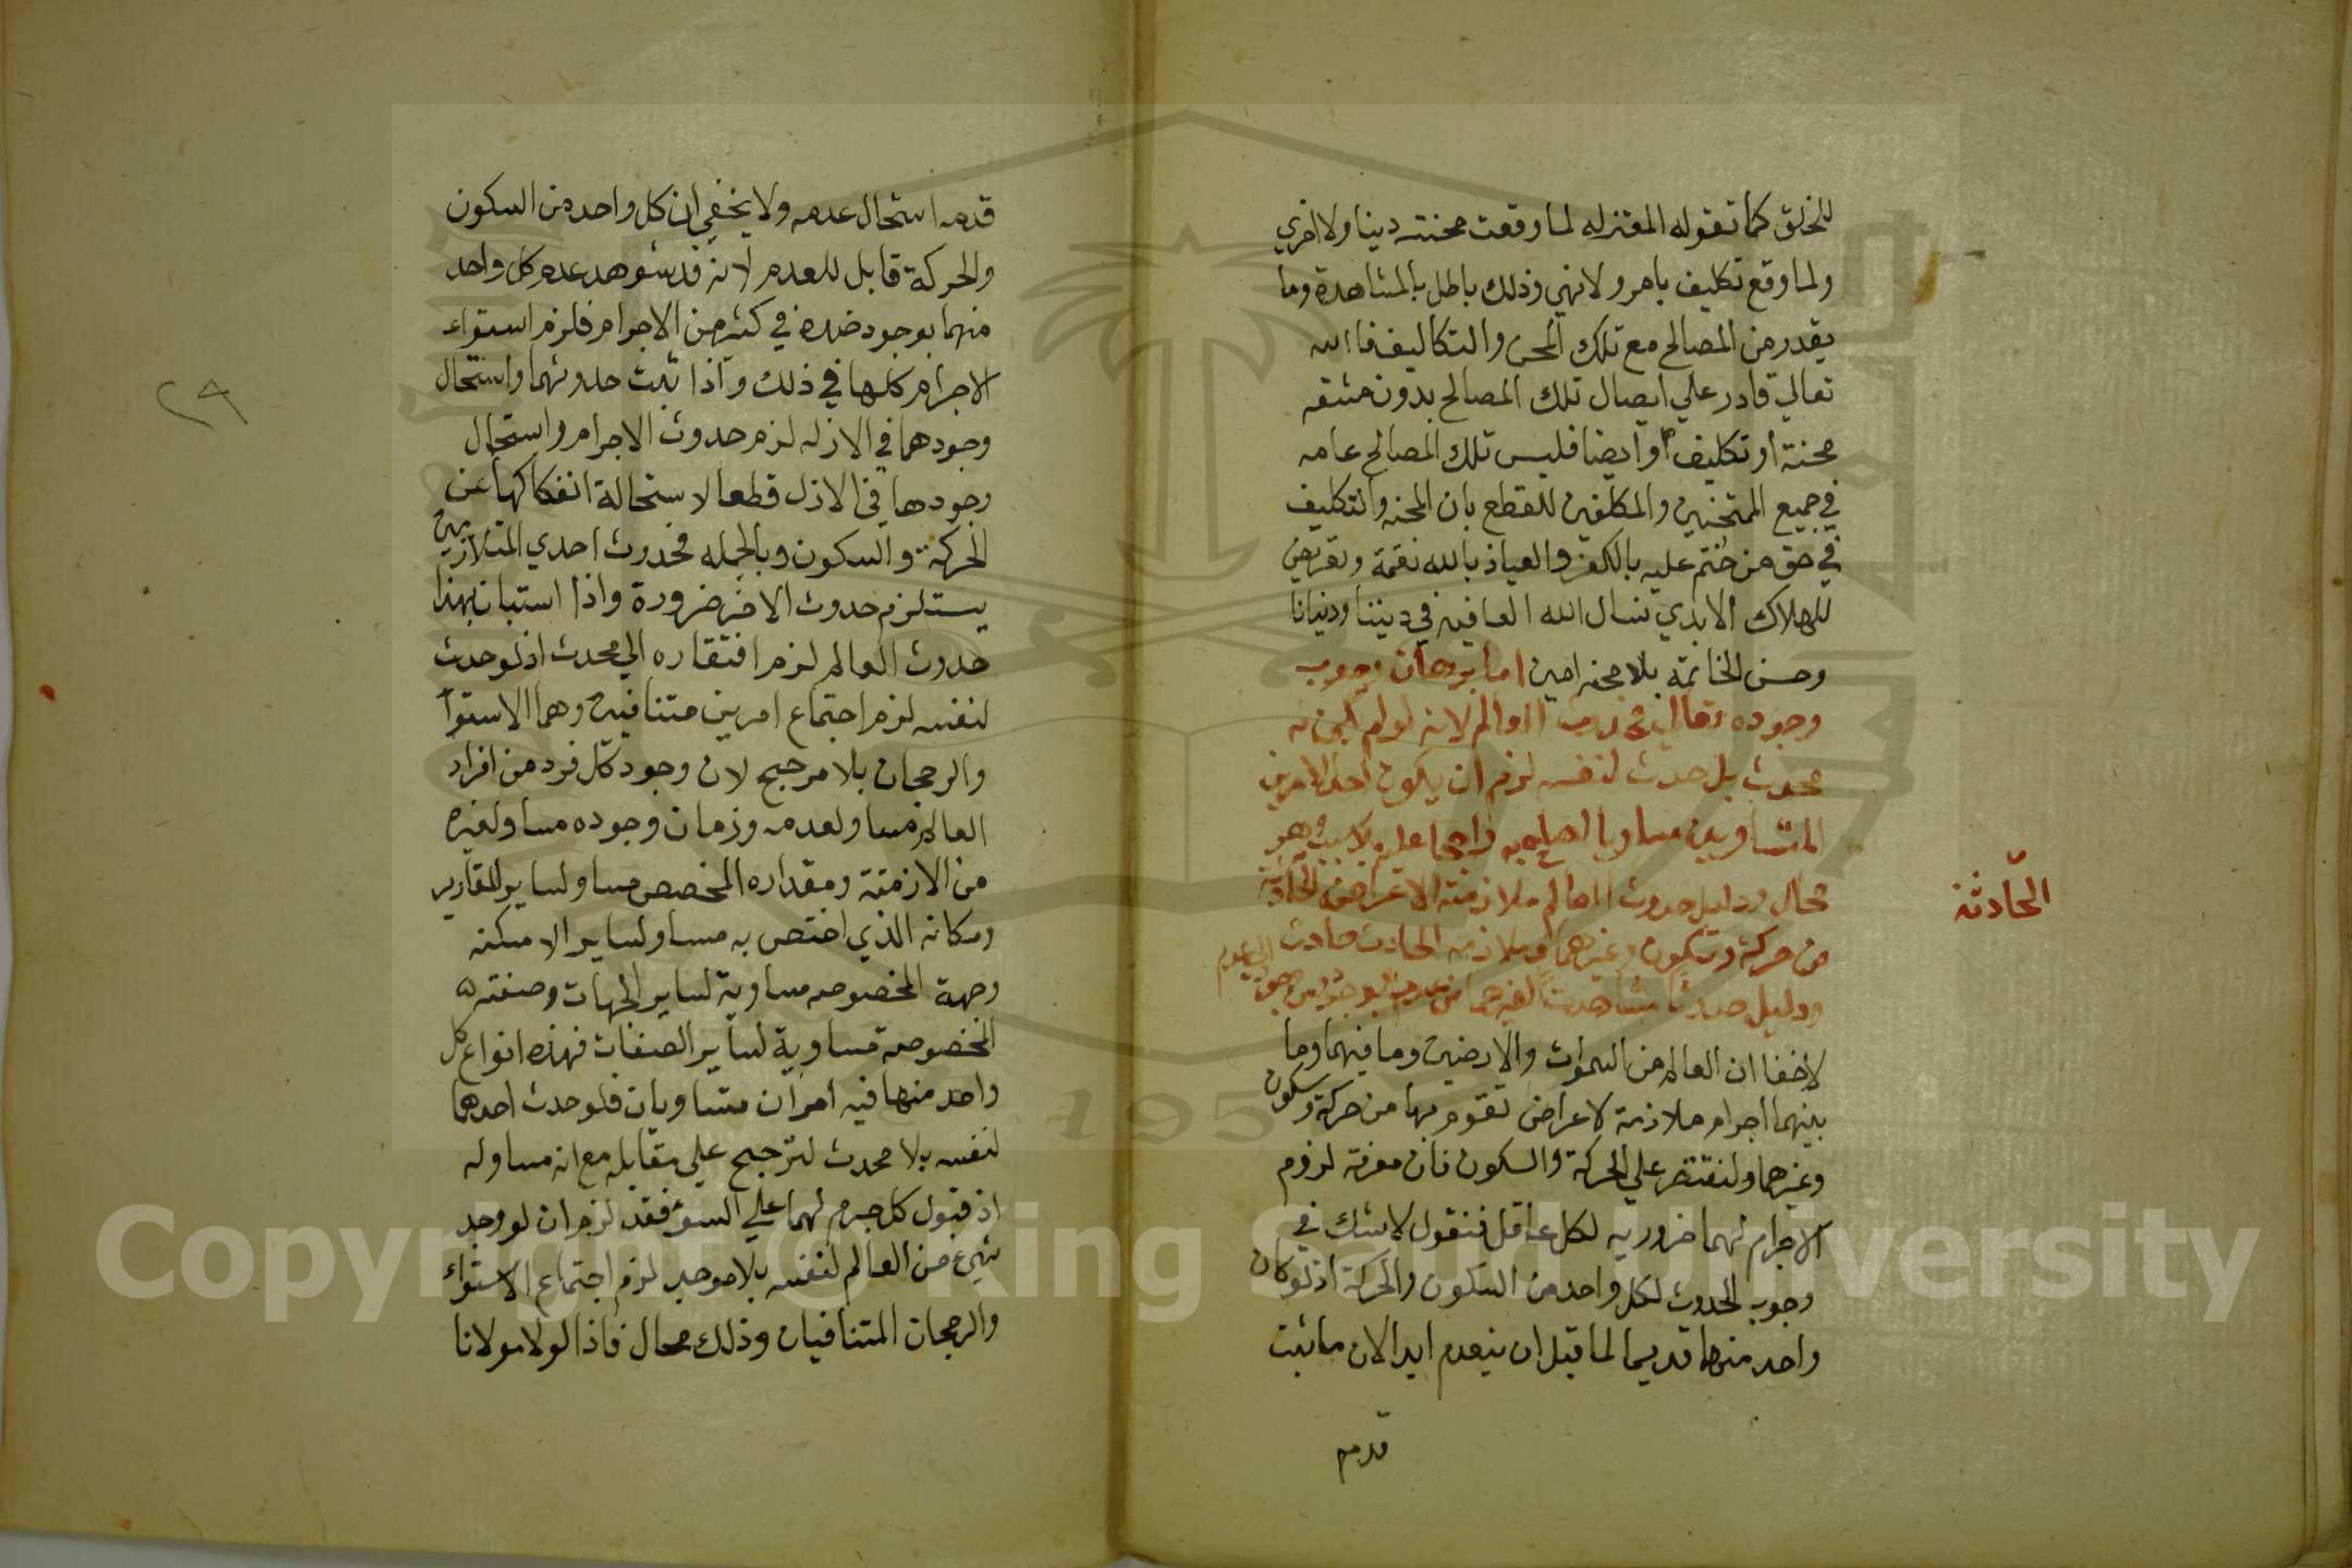 للخلق كما تقوله المعتزله لما وقعت محنته دينا ولا اخري
ولما وقع تكليف بامر ولا نهي وذلك باطل بالمشاهدة وما
يقدر من المصالح مع تلك المحن والتكاليف فالله
تعالي قادر علي ايصال تلك المصالح بدون مشقه
محنة او تكليف وايضا فليس تلك المصالح عامه
في جميع الممتحنين والمكلفين للقطع بان المحنه والتكليف
في حق من ختم عليه بالكفر والعياذ بالله نقمة وتعريض
للهلاك الابدي نسال الله العافيه في ديننا ودنيانا
وحسن الخاتمة بلا محنه امين اما برهان وجوب
وجوده تعالي فحدوث العالم لانه لو لم يكن له
محدث بل حدث لنفسه لزم ان يكون احد الامرين
المتساويين مساويا لصاحبه راجحا عليه بلا سبب وهو
محال ودليل حدوث العالم ملازمته الاعراض الحادثة
الحادثة
من حركة وسكون وغيرهما وملازمه الحادث حادث
ودليل حدوث مشاهدت تغيرهما من عدم الي وجود ومن وجود الي عدم
لاخفا ان العالم من السموات والارضين وما فيهما وما
بينهما اجرام ملازمة لاعراض تقوم بها من حركة وسكون
وغيرهما ولنقتصر علي الحركة والسكون فان معرفة لزوم
الاجرام لهما ضروريه لكل عاقل فنقول لا شك في
وجوب الحدوث لكل واحد من السكون والحركة اذ لو كان
واحد منهما قديما لما قبل ان ينعدم ابدا لان ما ثبت
قدمه
قدمه استحال عدمه ولا يخفي ان كل واحد من السكون
والحركة قابل للعدم لانه قد شوهد عدم كل واحد
منهما بوجود ضده في كثير من الاجرام فلزم استواء
الاجرام كلها في ذلك واذا ثبت حدوثهما واستحال
٢٩
وجودهما في الازل لزم حدوث الاجرام واستحال
وجودها في الازل قطعا لاستحالة انفكاكها عن
الحركة والسكون وبالجمله فحدوث احدي المتلازمين
يستلزم حدوث الاخر ضرورة واذا استبان بهذا
حدوث العالم لزم افتقاره الي محدث اذ لو حدث
لنفسه لزم اجتماع امرين متنافيين وهما الاستوآ
والرجحان بلا مرجح لان وجود كل فرد من افراد
العالم مساو لعدمه وزمان وجوده مساو لغيره
من الازمنة ومقداره المخصص مساو لساير المقادير
ومكانه الذي اختص به مساو لساير الامكنه
وجهة المخصوصه مساوية لساير الجهات وصفته
المخصوصه مساوية لساير الصفات فهذه انواع كل
واحد منها فيه امران متساويان فلو حدث احدهما
لنفسه بلا محدث لترجح علي مقابله مع انه مساو له
اذ قبول كل جرم لهما علي السوء فقد لزم ان لو وجد
شيء من العالم لنفسه بلا موجد لزم اجتماع الاستواء
والرجحان المتنافيان وذلك محال فاذا لولا مولانا
Copyright © King Saud University
195